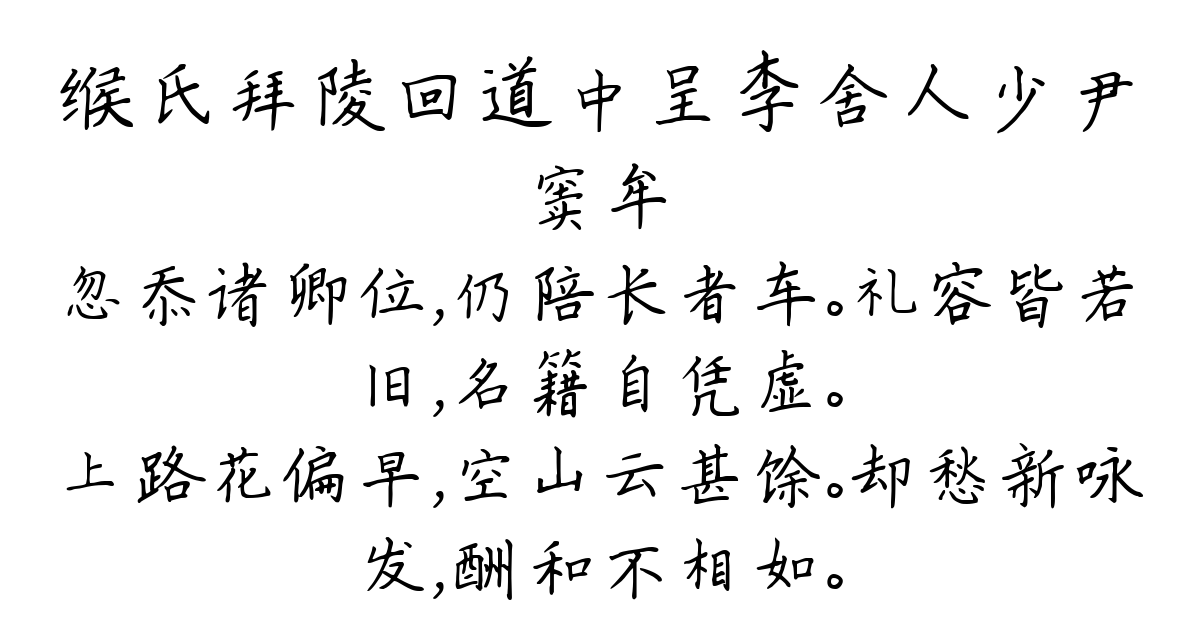 缑氏拜陵回道中呈李舍人少尹
窦牟
忽忝诸卿位,仍陪长者车。礼容皆若
旧,名籍自凭虚。
上路花偏早,空山云甚馀。却愁新咏
发,酬和不相如。